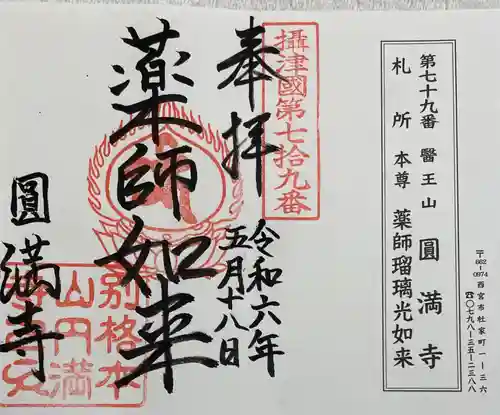 第七十九番 醫王山 圓満寺
札所 本尊 薬師瑠璃光如来
〒662-0974 西宮市社家町一ー三六
☎〇七九八ー三五ー二三八八
攝津國第七拾九番
奉拝
令和六年
五月十八日
薬師如来
圓満寺
別格本
山円満